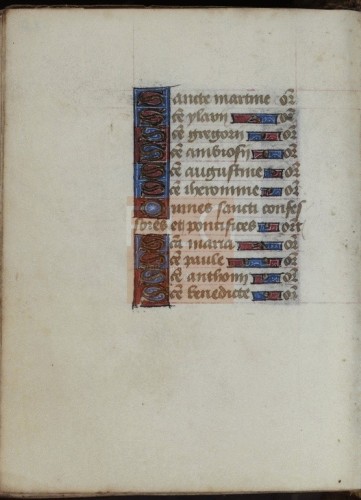 Sancte martine or̄
Sc̄e ylarij or̄
Sc̄e gregorij or̄
Sc̄e ambrosij or̄
Sc̄e augustine or̄
Sc̄e iheronime or̄
Omnes sancti confes
sores et pontifices ort
Sc̄a maria or̄
Sc̄e paule or̄
Sc̄e anthonij or̄
Sc̄e benedicte or̄